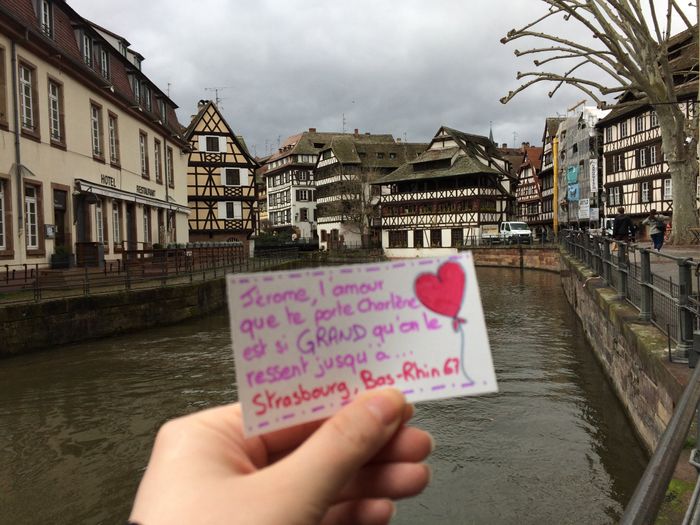 HOTEL RESTAURANT
Jérôme, l'amour
que te porte Charlène
est si GRAND qu'on le
ressent jusqu'à...
Strasbourg, Bas-Rhin 67